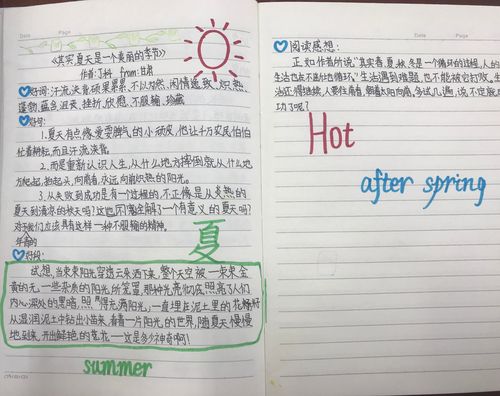 Date Page
《其实，夏天是一个美丽的季节》
作者：丁科 from：甘肃
好词：汗流浃背 硕果累累、不以为然、闲情逸致、炽热、
蓬勃、蕴含、沮丧、挫折、欣慰、不服输、珍藏
好句：
1.夏天有点像爱耍脾气的小顽皮，他让千万农民伯伯
忙着耕耘，而且汗流浃背。
2.而是重新认识人生，从什么地方摔倒就从什么地
方爬起，抬起头，向前看，永远向着炽热的阳光。
3.从失败到成功是有一个过程的，不正像是从炎热的
夏天到清凉的秋天吗？这也不愧全解了一个有意义的夏天吗？
对于我们应该具有这样一种不服输的精神。
年青的
夏
好段：
试想，当束束阳光穿透云朵洒下来，整个天空被一束束金
黄的光，一些杂亮的阳光，所笼罩，那种光亮彻底照亮了人们
内心深处的黑暗，照得光满阳光，一直埋在泥土里的花籽籽
从湿润泥土中钻出小苗来，看着一片阳光的世界，随夏天慢慢
地到来，开出鲜艳的花——这是多少神奇啊！
summer
Date Page
阅读感想：
正如作者所说"其实春夏秋冬是一个循环的过程，人的
生活也在不断地循环。"生活遇到难题，也不能被它打败，生
活还得继续，人要往前看，朝着太阳向前，多试几遍，说不定就成
功了呢？
Hot
after spring